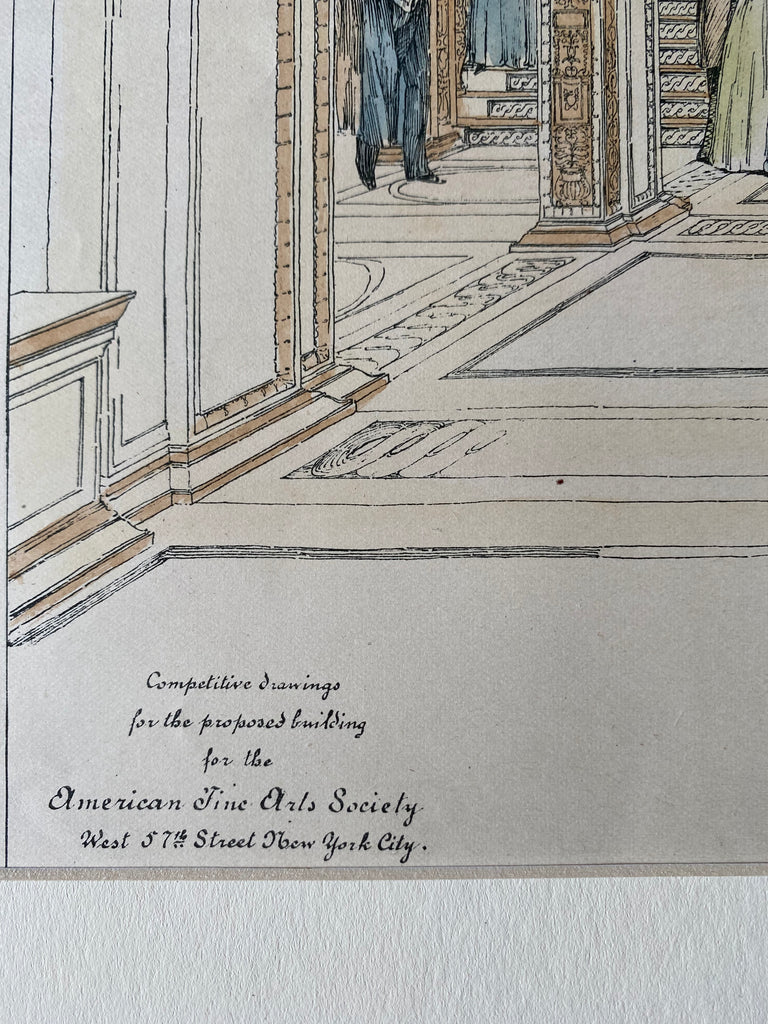 Competitive drawings
for the proposed building
for the
American Fine Arts Society
West 57th Street New York City.